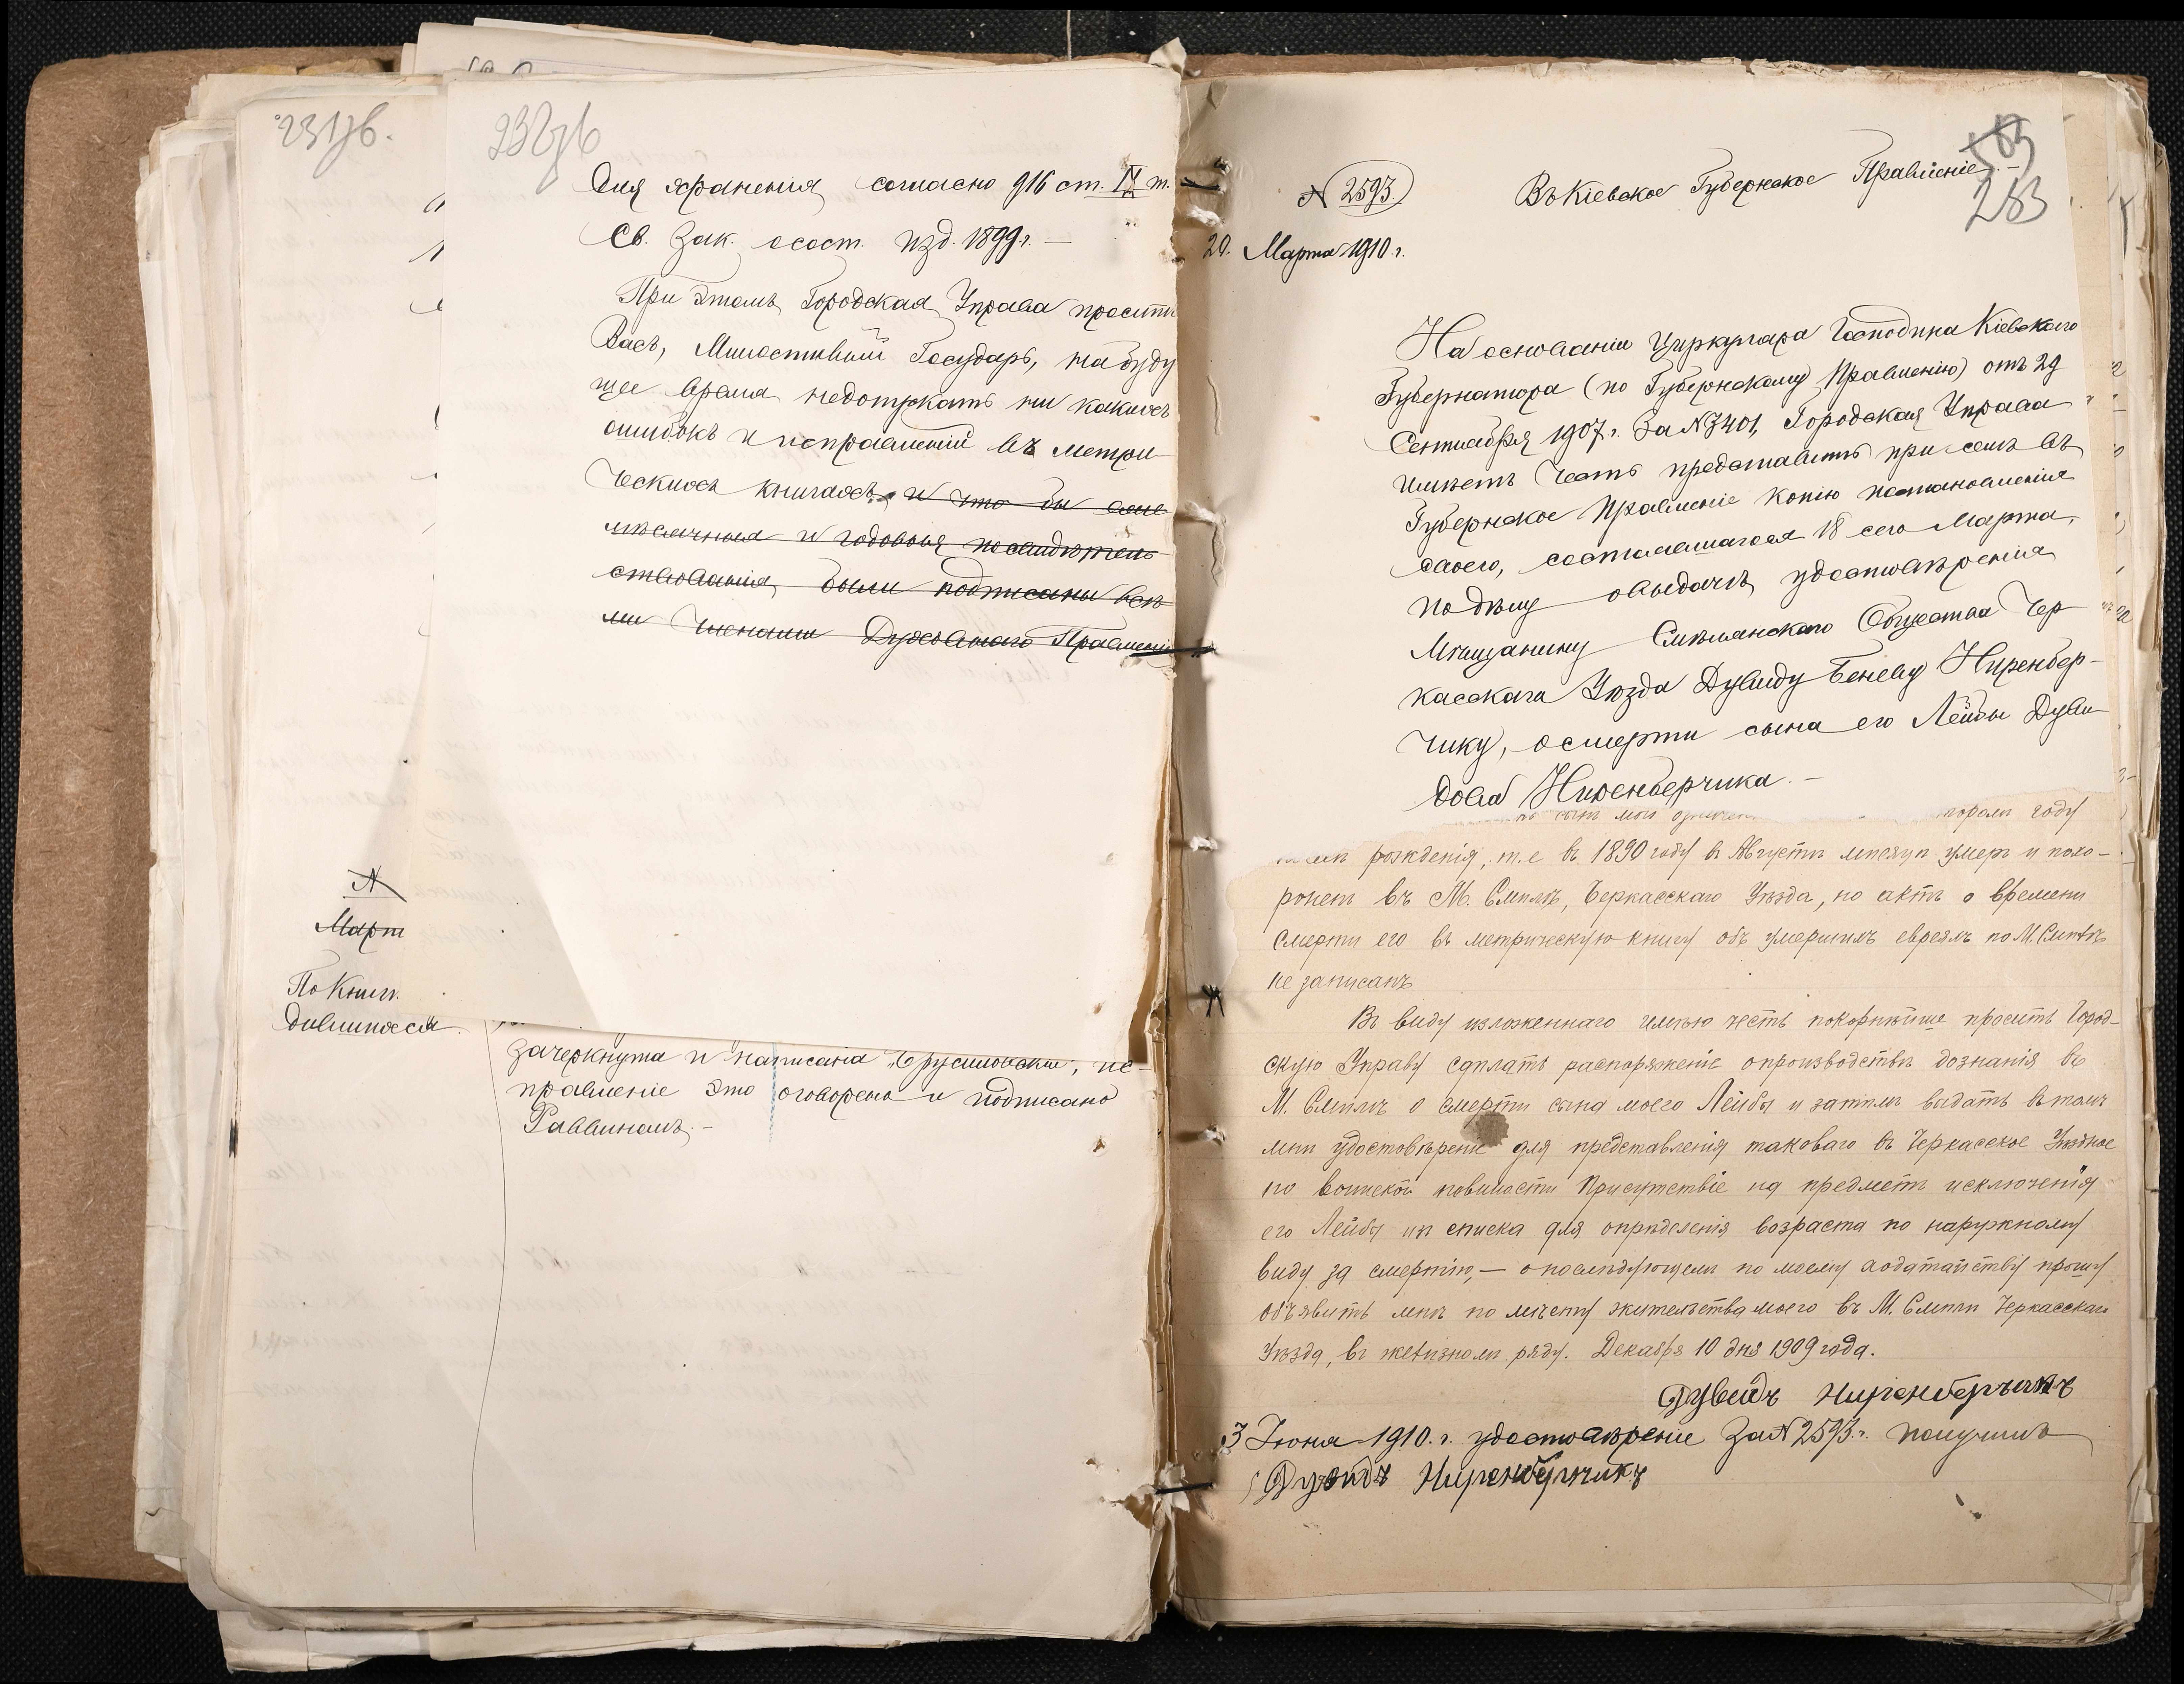 231об.
232об
Для храненія, согласно 916 ст. IX т.
Св. Зак. о сост. изд. 1899 г. —
При этомъ Городская Управа проситъ
Васъ, Милостивый Государь, на буду
щее время недопускать ни какихъ
ошибокъ и исправленій въ метри
ческихъ книгахъ, и что бы еже
мѣсячныя и годовыя по свидѣтель
ствованія, были подписаны всѣ
ми Членами Духовного Правленія
N
Март
По Книг.
дившихся
зачеркнута и написана „Брусиловски“, ис-
правленіе это оговорено и подписано
Раввиномъ. —
283
N 2593.
Въ Кіевское Губернское Правленіе. —
20. Марта 1910 г.
На основаніи Циркуляра Господина Кіевского
Губернатора (по Губернскому Правленію) отъ 29
Сентября 1907 г. За N 7401, Городская Управа
имѣетъ честь представить при семъ въ
Губернское Правленіе копію постановленія
своего, состоявшагося 18 сего Марта,
по дѣлу о выдачѣ удостовѣренія
Мѣщанину Смѣлянского Общества Чер
касскаго Уѣзда Дувиду Беневу Ниренбер-
чику, о смерти сына его Лейбы Дуви
дова Ниренберчика. —
сынъ мой
году
рожденія, т.е въ 1890 году въ Августѣ мѣсяцѣ умеръ и похо-
роненъ въ М. Смѣлѣ, Черкасскаго Уѣзда, но актъ о времени
смерти его въ метрическую книгу объ умершихъ евреяхъ по М. Смѣлѣ
не записанъ
Въ виду изложеннаго имѣю честь покорнѣйше просить Город-
скую Управу сдѣлать распоряженіе о производствѣ дознанія въ
М. Смѣлѣ о смерти сына моего Лейбы и затѣмъ выдать въ томъ
мнѣ удостовѣреніе для представленія таковаго въ Черкасское Уѣздное
по воинской повинности Присутствіе на предметъ исключенія
его Лейбу изъ списка для опредѣленія возраста по наружному
виду за смертію, — о послѣдующемъ по моему ходатайству прошу
объявить мнѣ по мѣсту жительства моего въ М. Смѣлѣ Черкасскаго
Уѣзда, въ желѣзномъ ряду. Декабря 10 дня 1909 года.
Дувидъ Ниренберчикъ
3 Іюня 1910. г. удостовѣреніе За N 2593. г. получилъ
Дувидъ Ниренберчикъ